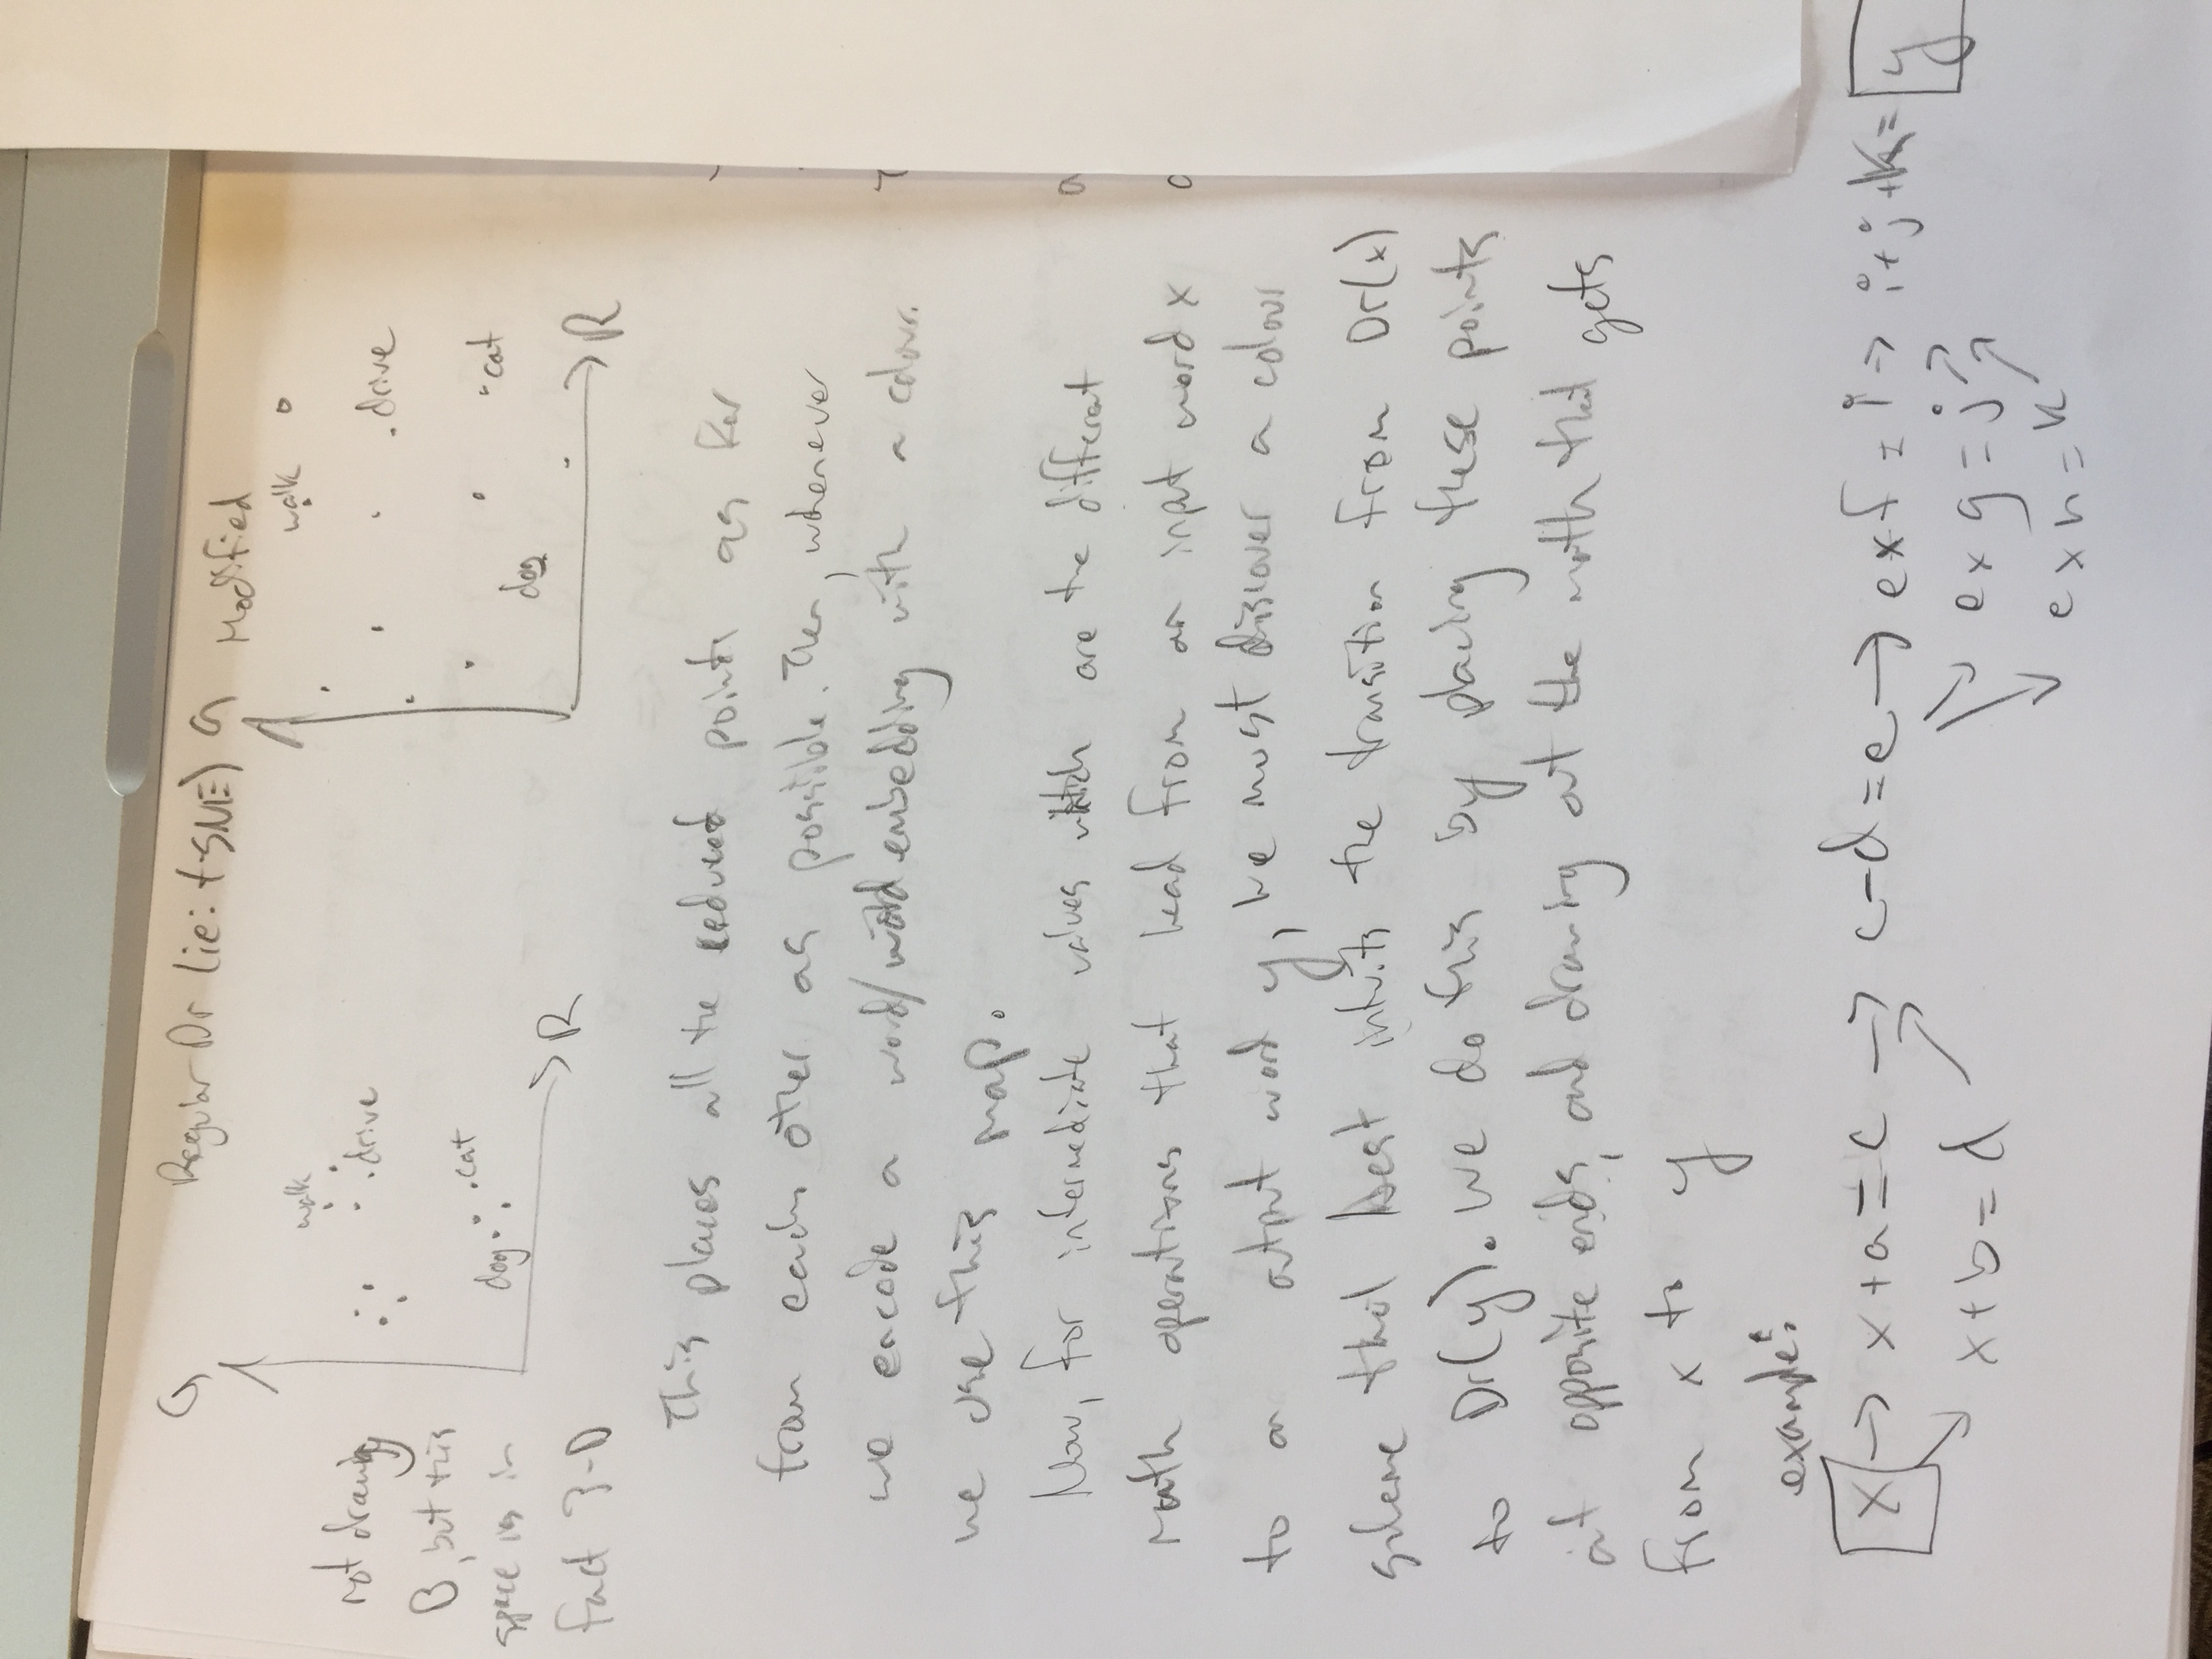 G
Regular Dr (ie: t-SNE)
G
Modified
walk
drive
dog
cat
R
not drawing
B, but this
space is in
fact 3-D
walk
drive
cat
dog
R
This places all the reduced points as far
from each other as possible. Then, whenever
we encode a word/word embedding with a colour.
we use this map.
Now, for intermediate values which are the different
math operations that lead from an input word x
to an output word y, we must discover a colour
scheme that best intuits the transition from Dr(x)
to Dr(y). We do this by placing these points
at opposite ends, and drawing out the math that gets
from x to y
example:
x → x+a=c → c-d=e → exf=i → i+j+k=y
x+b=d
exg=j
exh=k